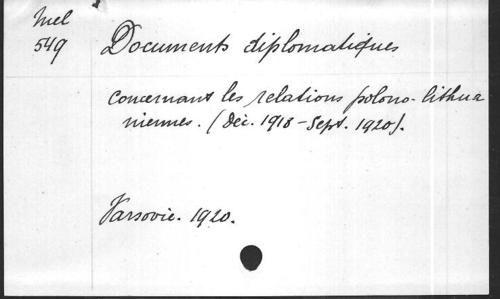 Mel
549
Documents diplomatiques
concernant les relations polono-lithua
niennes. (Déc. 1918 - Sept. 1920).
Varsovie. 1920.